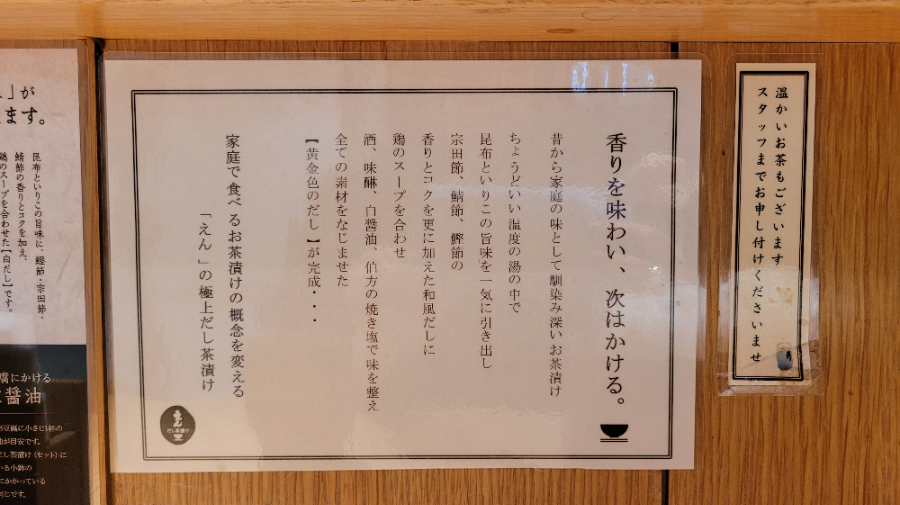 香りを味わい、次はかける。
昔から家庭の味として馴染み深いお茶漬け
ちょうどいい温度の湯の中で
昆布といりこの旨味を一気に引き出し
宗田節、鯖節、鰹節の
香りとコクを更に加えた和風だしに
鶏のスープを合わせ
酒、味醂、白醤油、伯方の焼き塩で味を整え
全ての素材をなじませた
【黄金色のだし】が完成・・・
家庭で食べるお茶漬けの概念を変える
「えん」の極上だし茶漬け
えん
だし茶漬け
温かいお茶もございます
スタッフまでお申し付けくださいませ
」が
ます。
昆布といりこの旨味に、鰹節・宗田節・
鯖節の香りとコクを加え、
鶏のスープを合わせた【白だし】です。
腐にかける
醤油
豆腐に小さじ1杯の
が目安です。
だし茶漬け(セット)に
いる小鉢の
にかかっている
同じです。